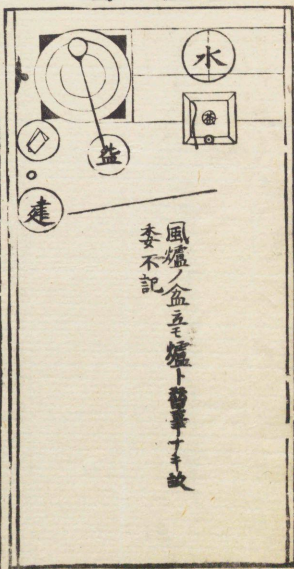 水
盖
建
風爐ノ盆立モ爐ト替事ナキ故
委不記